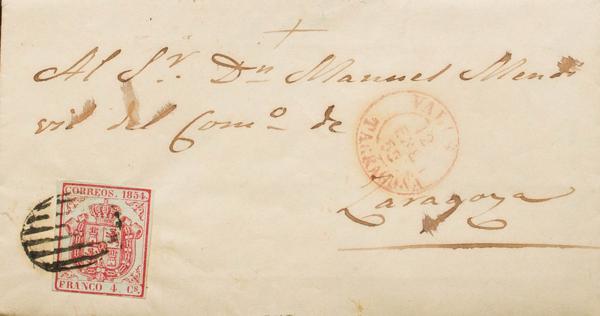 Al Sr. Dn Manuel Mendi
vil del Como de
Zaragoza
VALLS
TARRAGONA
CORREOS. 1854.
FRANCO 4 Cs.